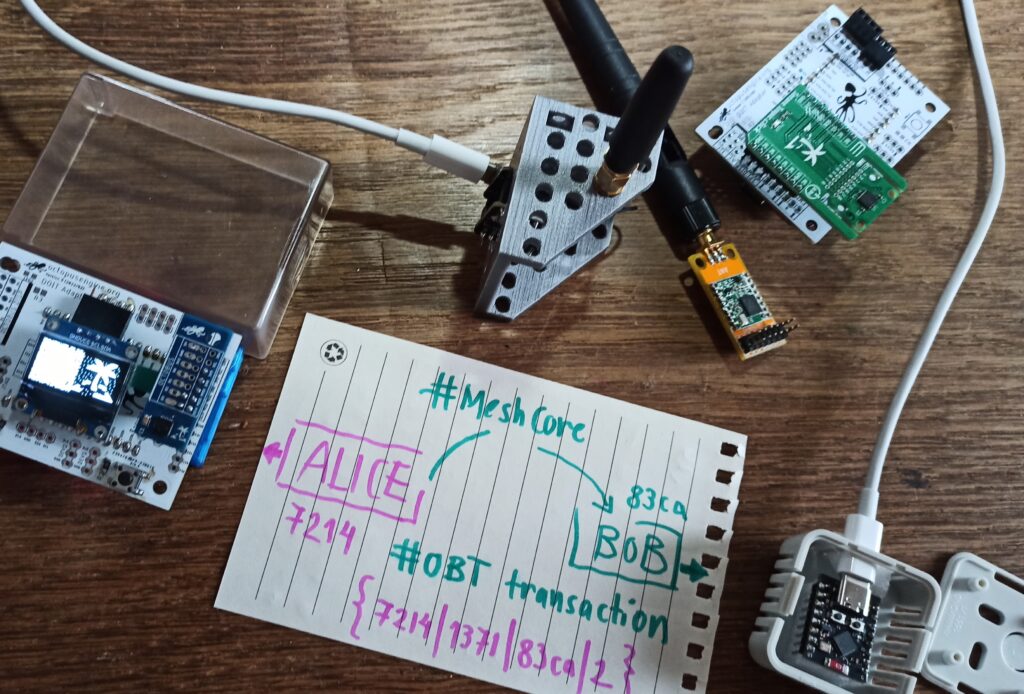 octopusengine.org
#MeshCore
ALICE
7214
83ca
BOB
#OBT transaction
{7214|1371|83ca|2}